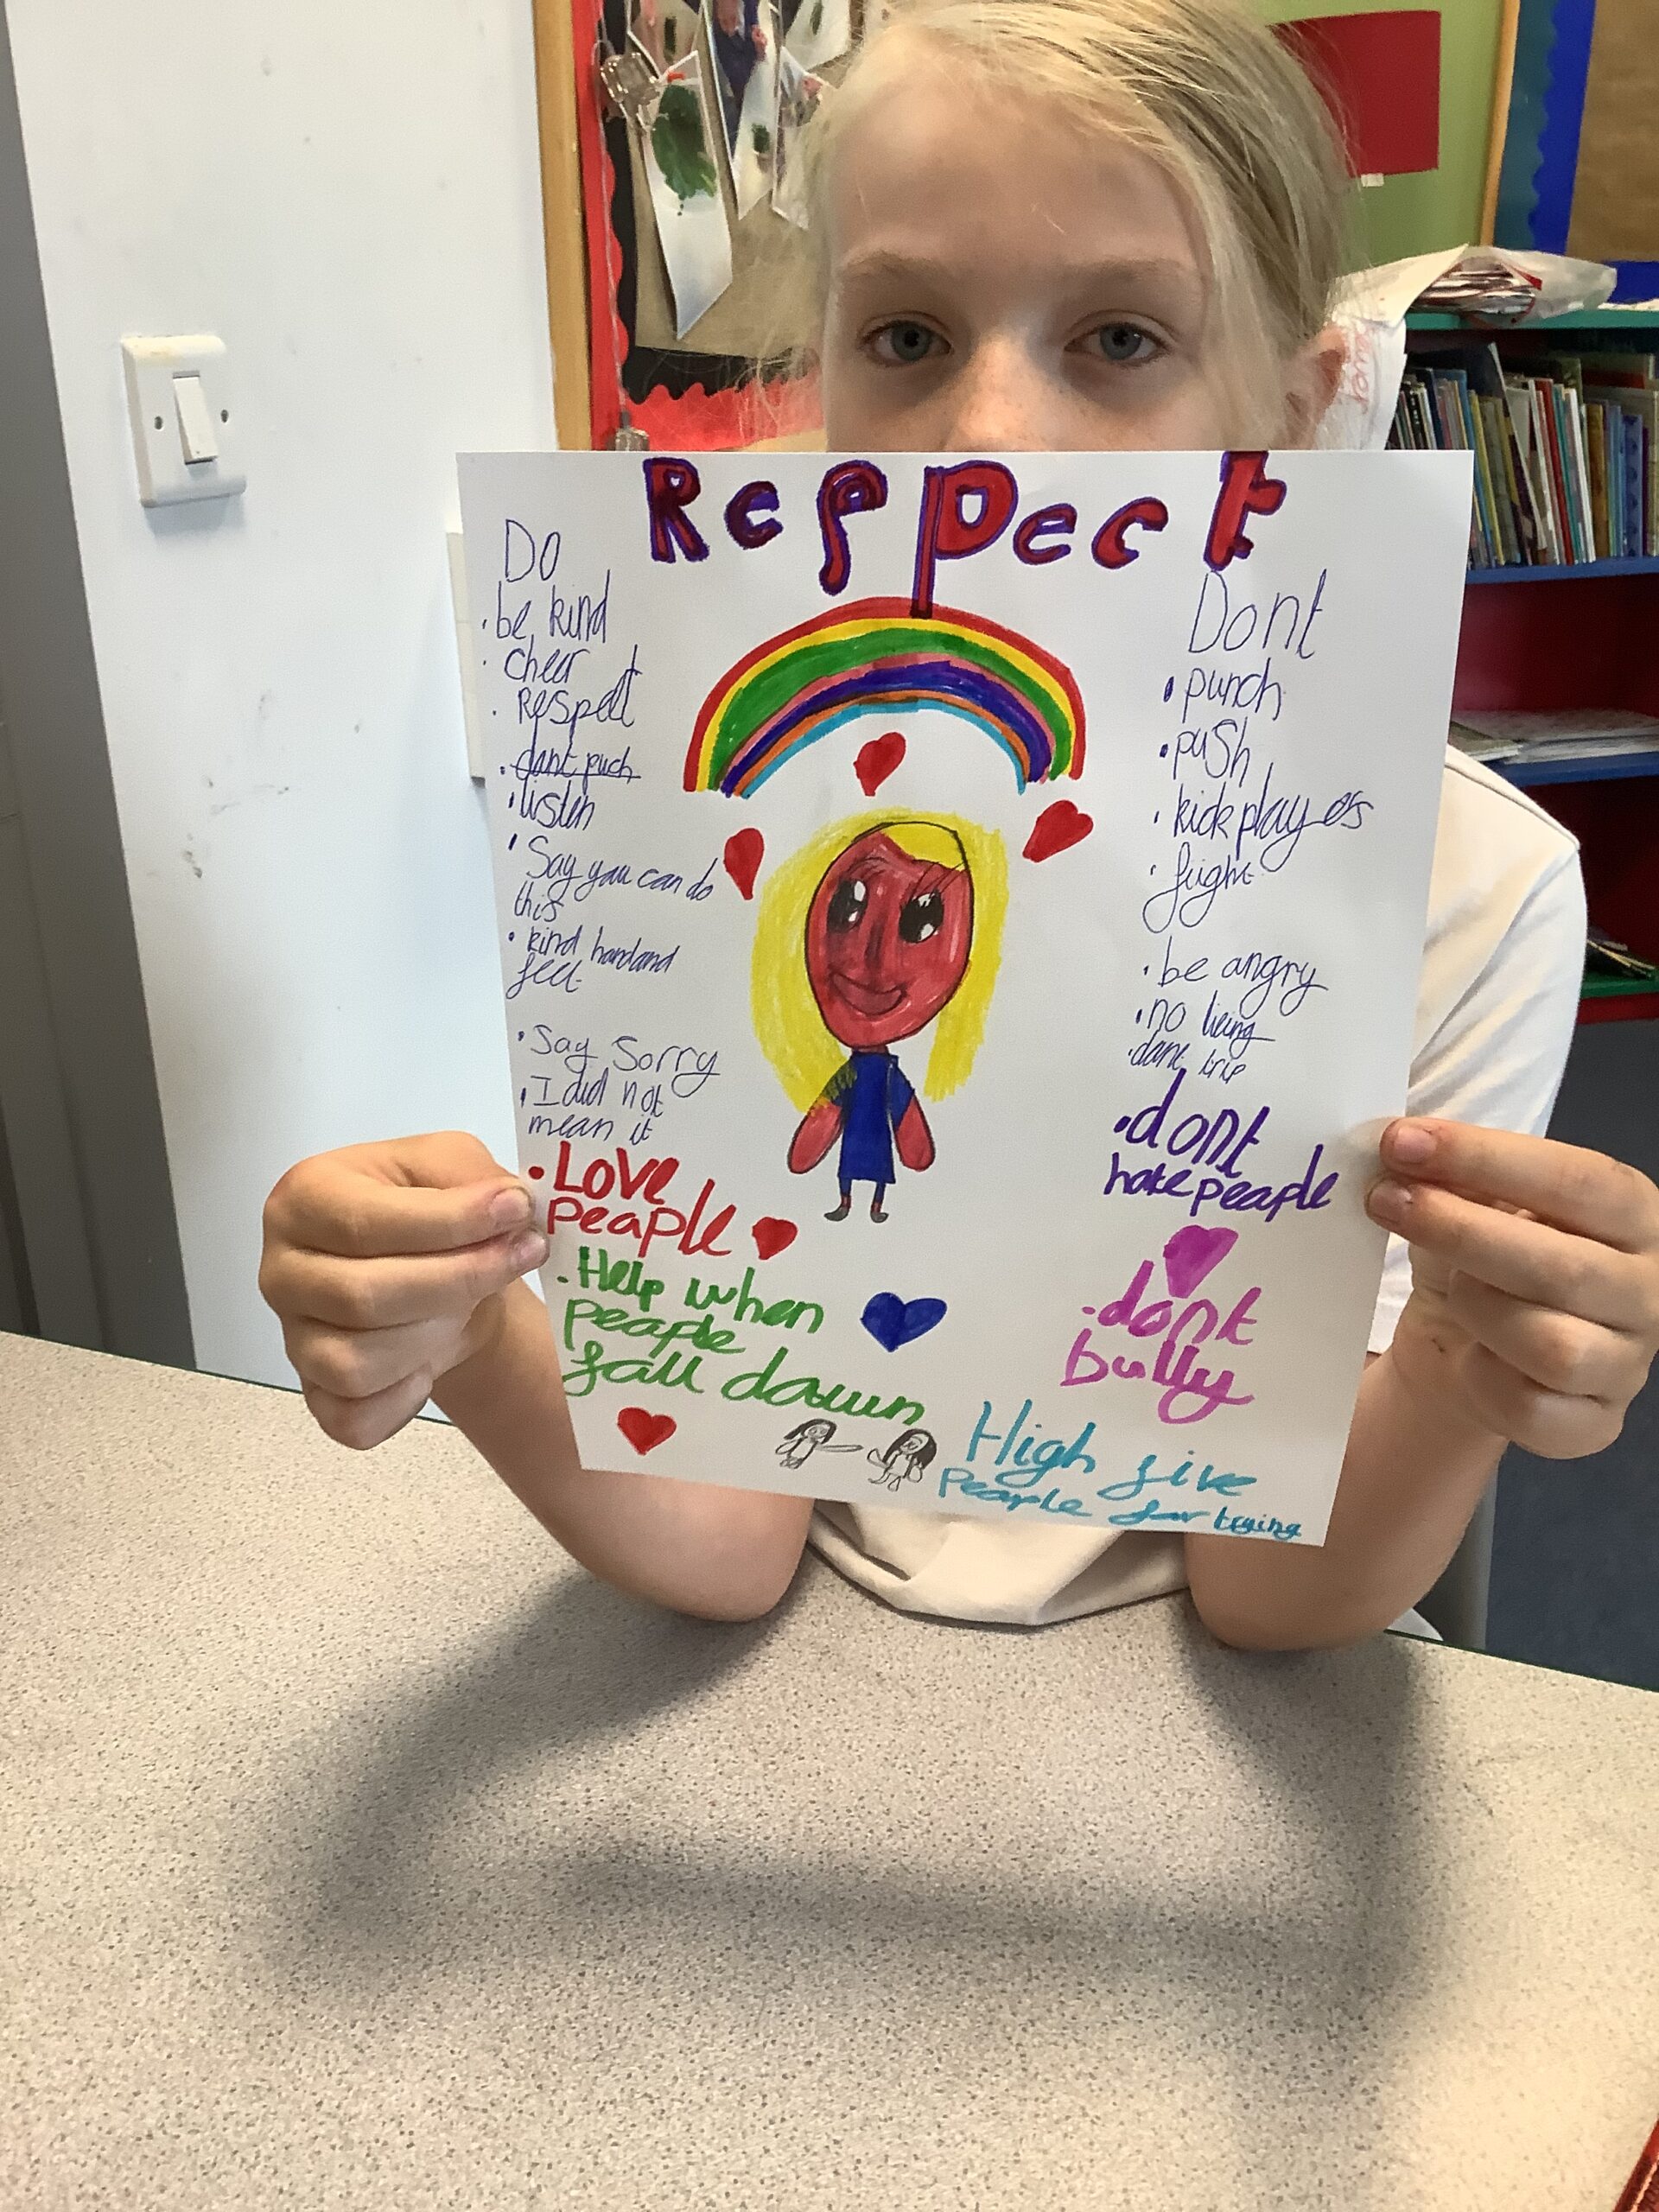 Respect
Do
· be kind
· cheer
· Respect
· dant puch
· listen
· Say you can do
this
· kind hand and
feet
· Say Sorry
· I did not
mean it
· Love
peaple
· Help when
peaple
fall dawn
Dont
· punch
· push
· kick play ers
· fight
· be angry
· no lieing
· dant trip
· dont
hate peaple
· dont
bully
High five
Peaple for trying